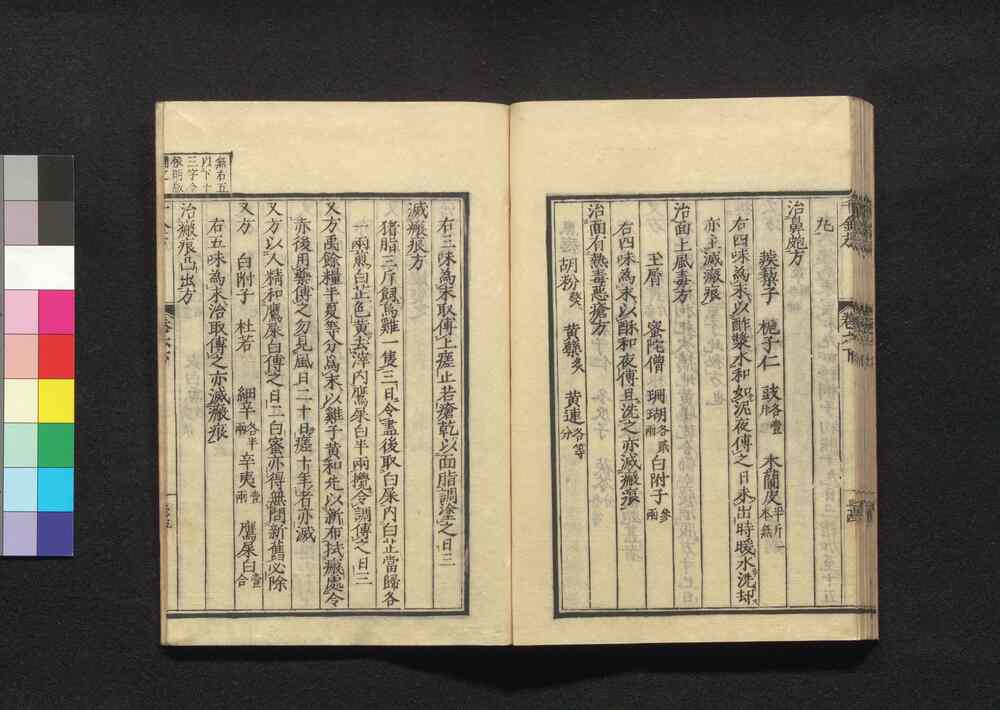 丸
治鼻皰方
蒺藜子 梔子仁 豉各壹升 木蘭皮半斤一本無
右四味為末以酢漿水和如泥夜傅之日未出時暖水洗却
亦主滅瘢痕
治面上風毒方
玉屑 蜜陀僧 珊瑚各貳兩 白附子參兩
右四味為末以酥和夜傅旦洗之亦滅瘢痕
治面有熱毒惡瘡方
胡粉熬 黃蘗炙 黃連各等分
右三味為末取傅上瘥止若瘡乾以面脂調塗之日三
滅瘢痕方
猪脂三斤飼烏雞一隻三日令盡後取白屎內白芷當歸各
一兩煎白芷色黃去滓內鷹屎白半兩攪令調傅之日三
又方禹餘糧半夏等分為末以雞子黃和先以新布拭瘢處令
赤後用藥傅之勿見風日二十日瘥十年者亦滅
又方以人精和鷹屎白傅之日二白蜜亦得無問新舊必除
又方 白附子 杜若 細辛各半兩 辛夷壹兩 鷹屎白壹合
右五味為末治取傅之亦滅瘢痕
治瘢痕凸出方
無右五
以下十
三字今